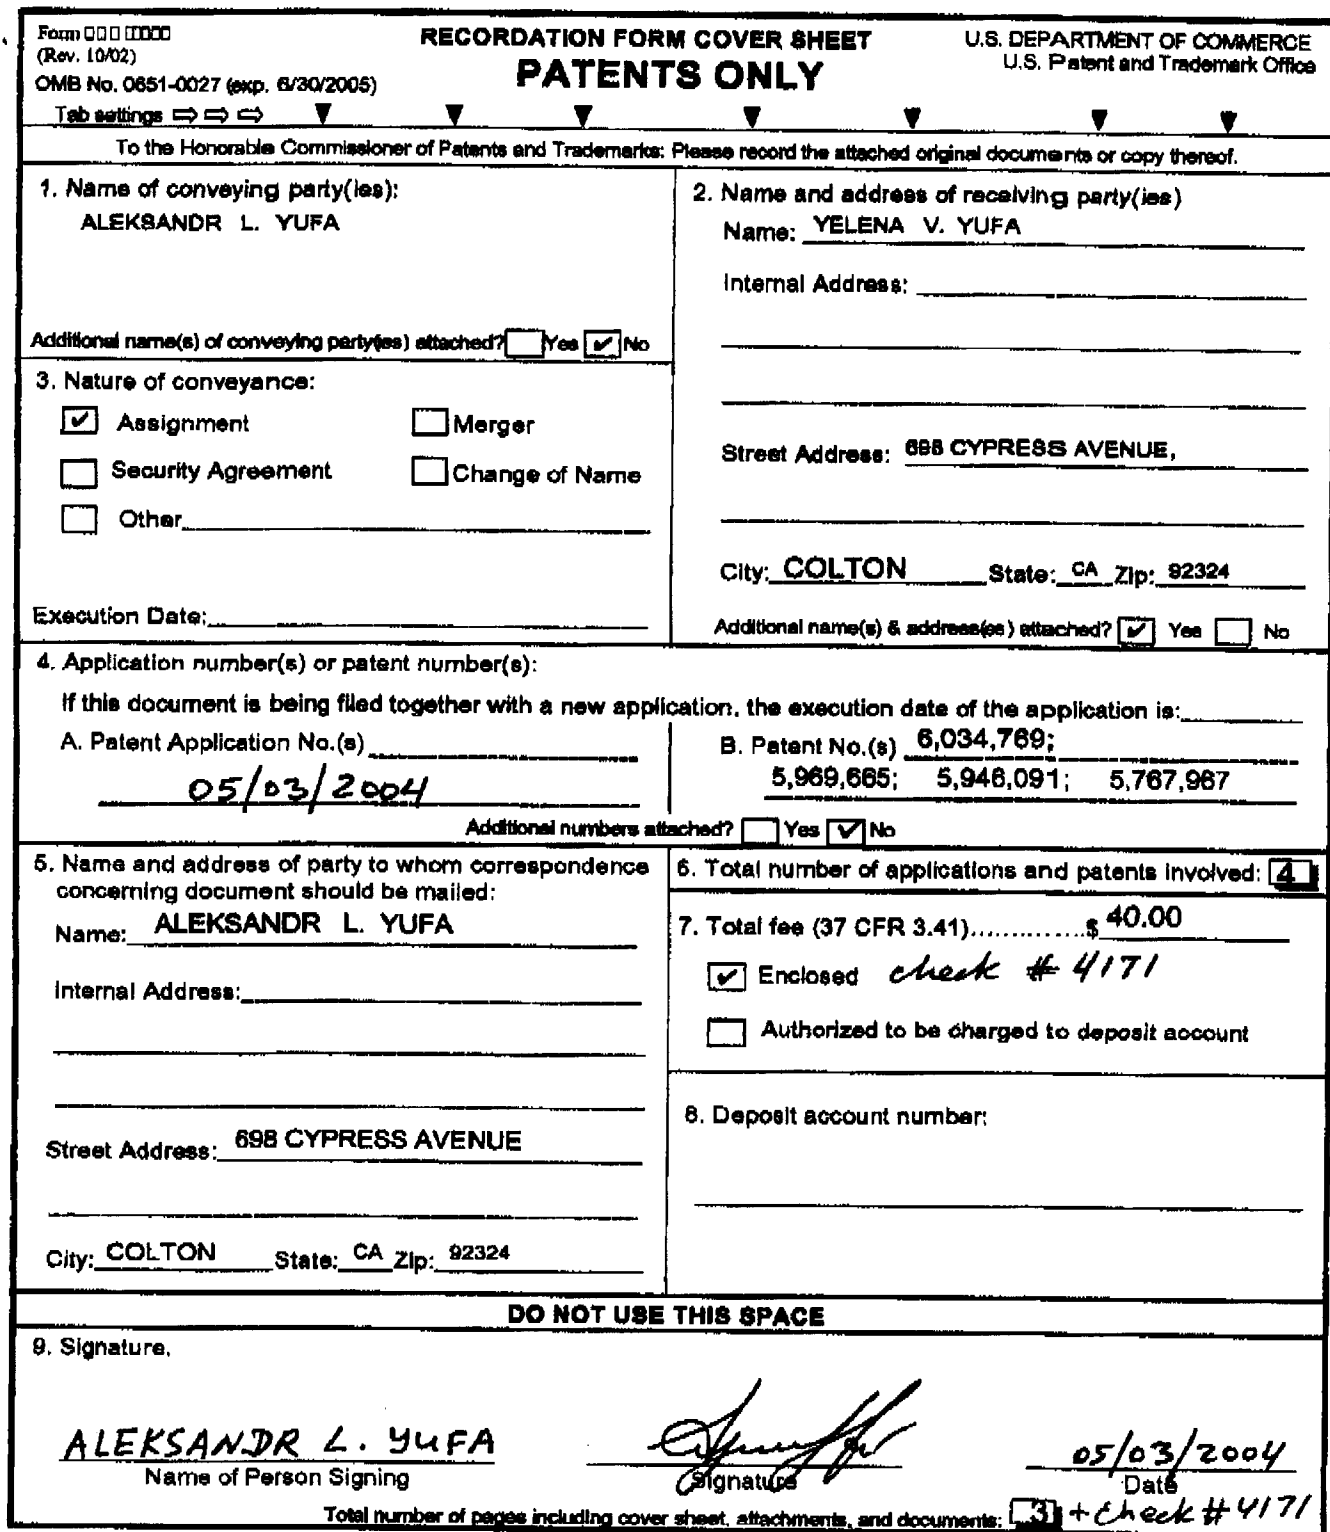 Form
(Rev. 10/02)
OMB No. 0651-0027 (exp. 6/30/2005)
Tab settings ⇨ ⇨ ⇨ ▼ ▼ ▼ ▼ ▼ ▼ ▼
RECORDATION FORM COVER SHEET
PATENTS ONLY
U.S. DEPARTMENT OF COMMERCE
U.S. Patent and Trademark Office
To the Honorable Commissioner of Patents and Trademarks: Please record the attached original documents or copy thereof.
1. Name of conveying party(ies):
ALEKSANDR L. YUFA
Additional name(s) of conveying party(ies) attached? ☐ Yes ☑ No
2. Name and address of receiving party(ies)
Name: YELENA V. YUFA
Internal Address:
Street Address: 698 CYPRESS AVENUE,
City: COLTON State: CA Zip: 92324
Additional name(s) & address(es) attached? ☑ Yes ☐ No
3. Nature of conveyance:
☑ Assignment ☐ Merger
☐ Security Agreement ☐ Change of Name
☐ Other
Execution Date:
4. Application number(s) or patent number(s):
If this document is being filed together with a new application, the execution date of the application is:
A. Patent Application No.(s)
05/03/2004
B. Patent No.(s) 6,034,769;
5,969,665; 5,946,091; 5,767,967
Additional numbers attached? ☐ Yes ☑ No
5. Name and address of party to whom correspondence
concerning document should be mailed:
Name: ALEKSANDR L. YUFA
Internal Address:
Street Address: 698 CYPRESS AVENUE
City: COLTON State: CA Zip: 92324
6. Total number of applications and patents involved: 4
7. Total fee (37 CFR 3.41)..............$ 40.00
☑ Enclosed check # 4171
☐ Authorized to be charged to deposit account
8. Deposit account number:
DO NOT USE THIS SPACE
9. Signature.
ALEKSANDR L. YUFA
Name of Person Signing
Signature
05/03/2004
Date
Total number of pages including cover sheet, attachments, and documents: 3 + check # 4171